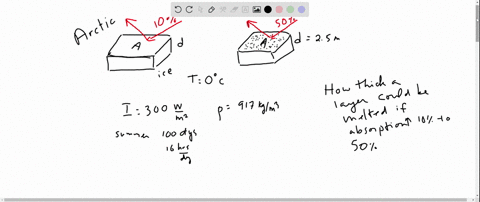 Arctic
10%
A
d
ice
50%
A
d = 2.5m
T: 0°C
I = 300 W/m²
ρ = 917 kg/m³
summer 100 dys
16 hrs/dy
How thick a
layer could be
melted if
absorption↑ 10% → to
50%